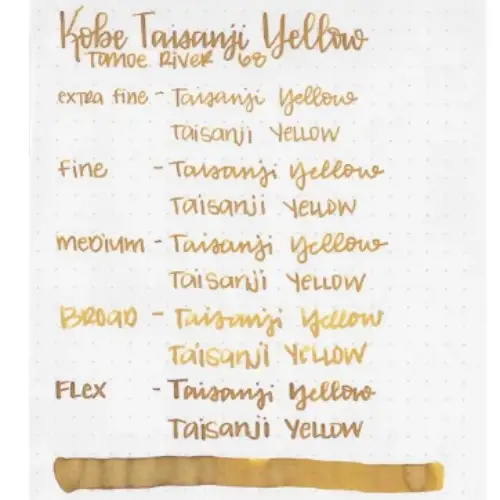 Kobe Taisanji Yellow
Tomoe River 68
extra fine - Taisanji Yellow
Taisanji Yellow
fine - Taisanji Yellow
Taisanji Yellow
medium - Taisanji Yellow
Taisanji Yellow
Broad - Taisanji Yellow
Taisanji Yellow
Flex - Taisanji Yellow
Taisanji Yellow